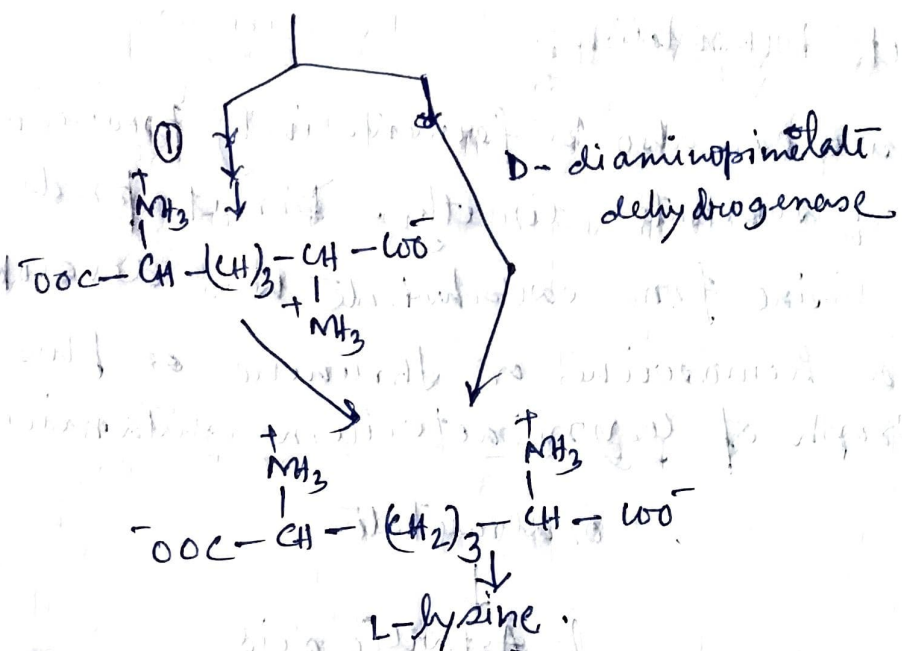 ①
D- diaminopimelate
dehydrogenase
+
NH3
-OOC-CH-(CH)3-CH-COO-
+NH3
+
NH3
+
NH3
-OOC-CH-(CH2)3-CH-COO-
L-lysine.